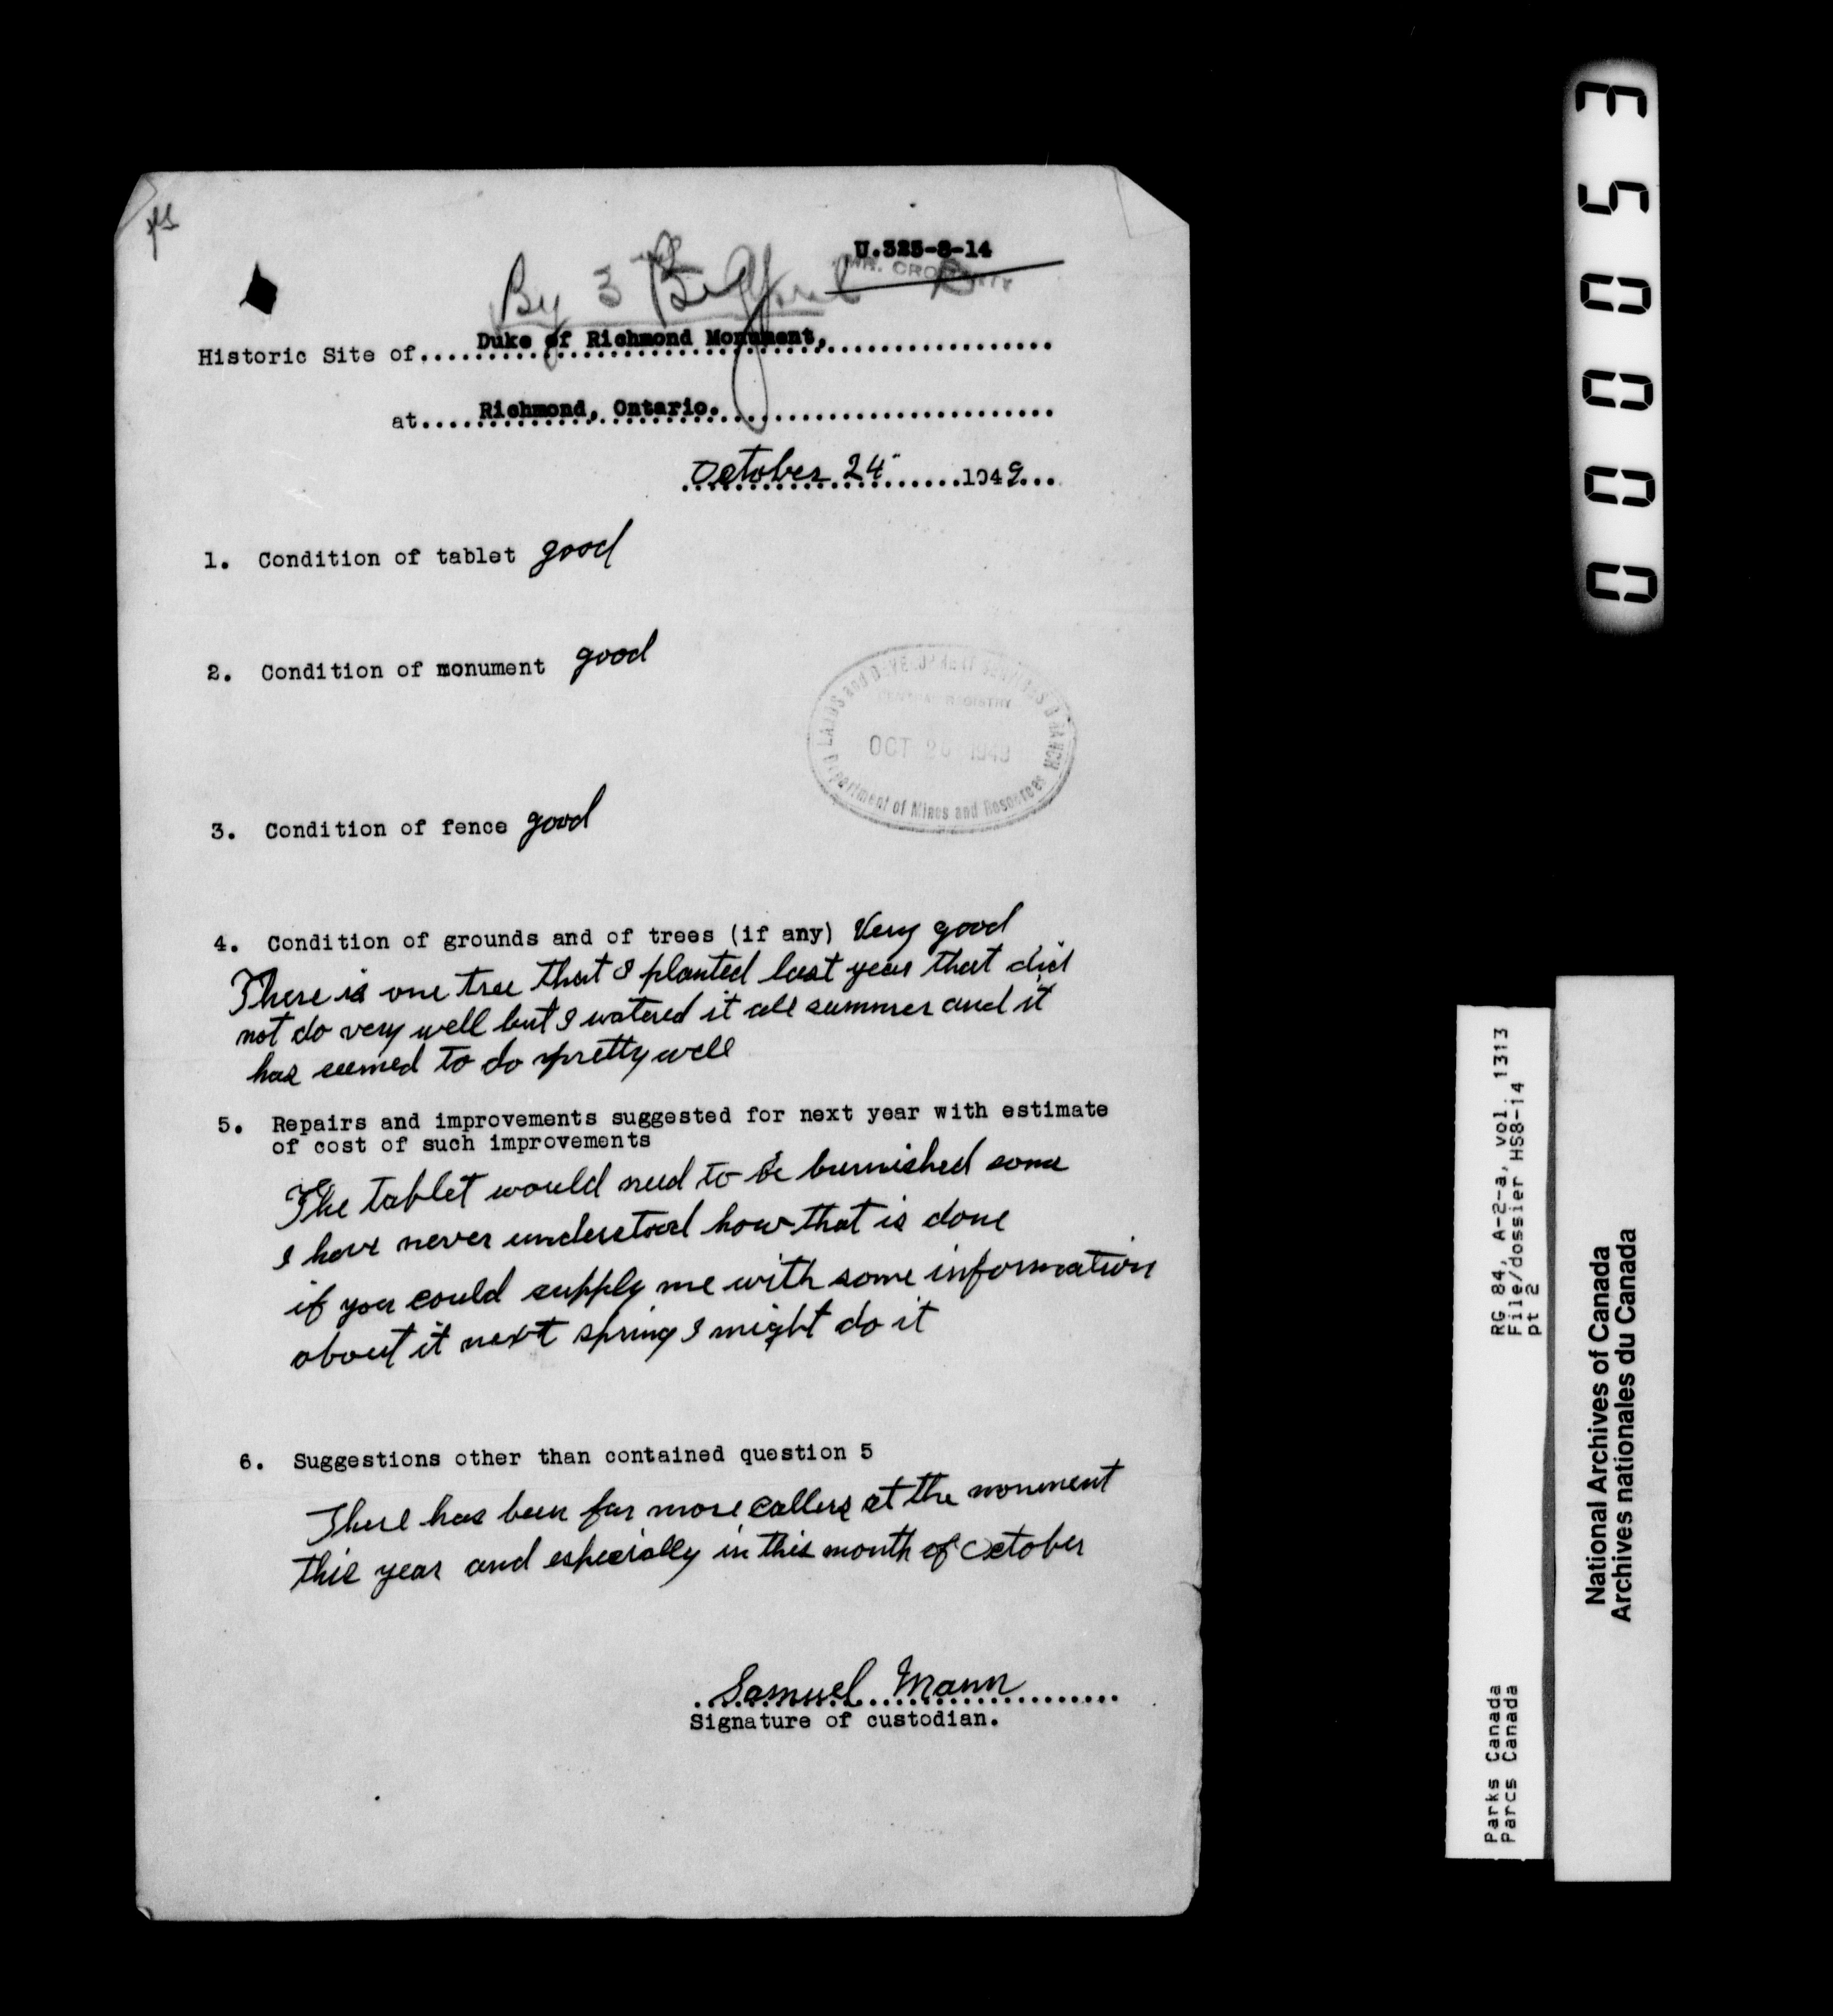 U.325-8-14
By 3
Historic Site of....Duke of Richmond Monument,
at....Richmond, Ontario.
October 24 1949
1. Condition of tablet good
2. Condition of monument good
LANDS and DEVELOPMENT SERVICES BRANCH
CENTRAL REGISTRY
OCT 1949
Department of Mines and Resources
3. Condition of fence good
4. Condition of grounds and of trees (if any) Very good
There is one tree that I planted last year that did
not do very well but I watered it all summer and it
has seemed to do pretty well
5. Repairs and improvements suggested for next year with estimate
of cost of such improvements
The tablet would need to be burnished some
I have never understood how that is done
if you could supply me with some information
about it next spring I might do it
6. Suggestions other than contained question 5
There has been far more callers at the monument
this year and especially in this month of October
Samuel Mann
Signature of custodian.
000053
RG 84, A-2-a, vol. 1313
File/dossier HS8-14
pt 2
Parks Canada
Parcs Canada
National Archives of Canada
Archives nationales du Canada